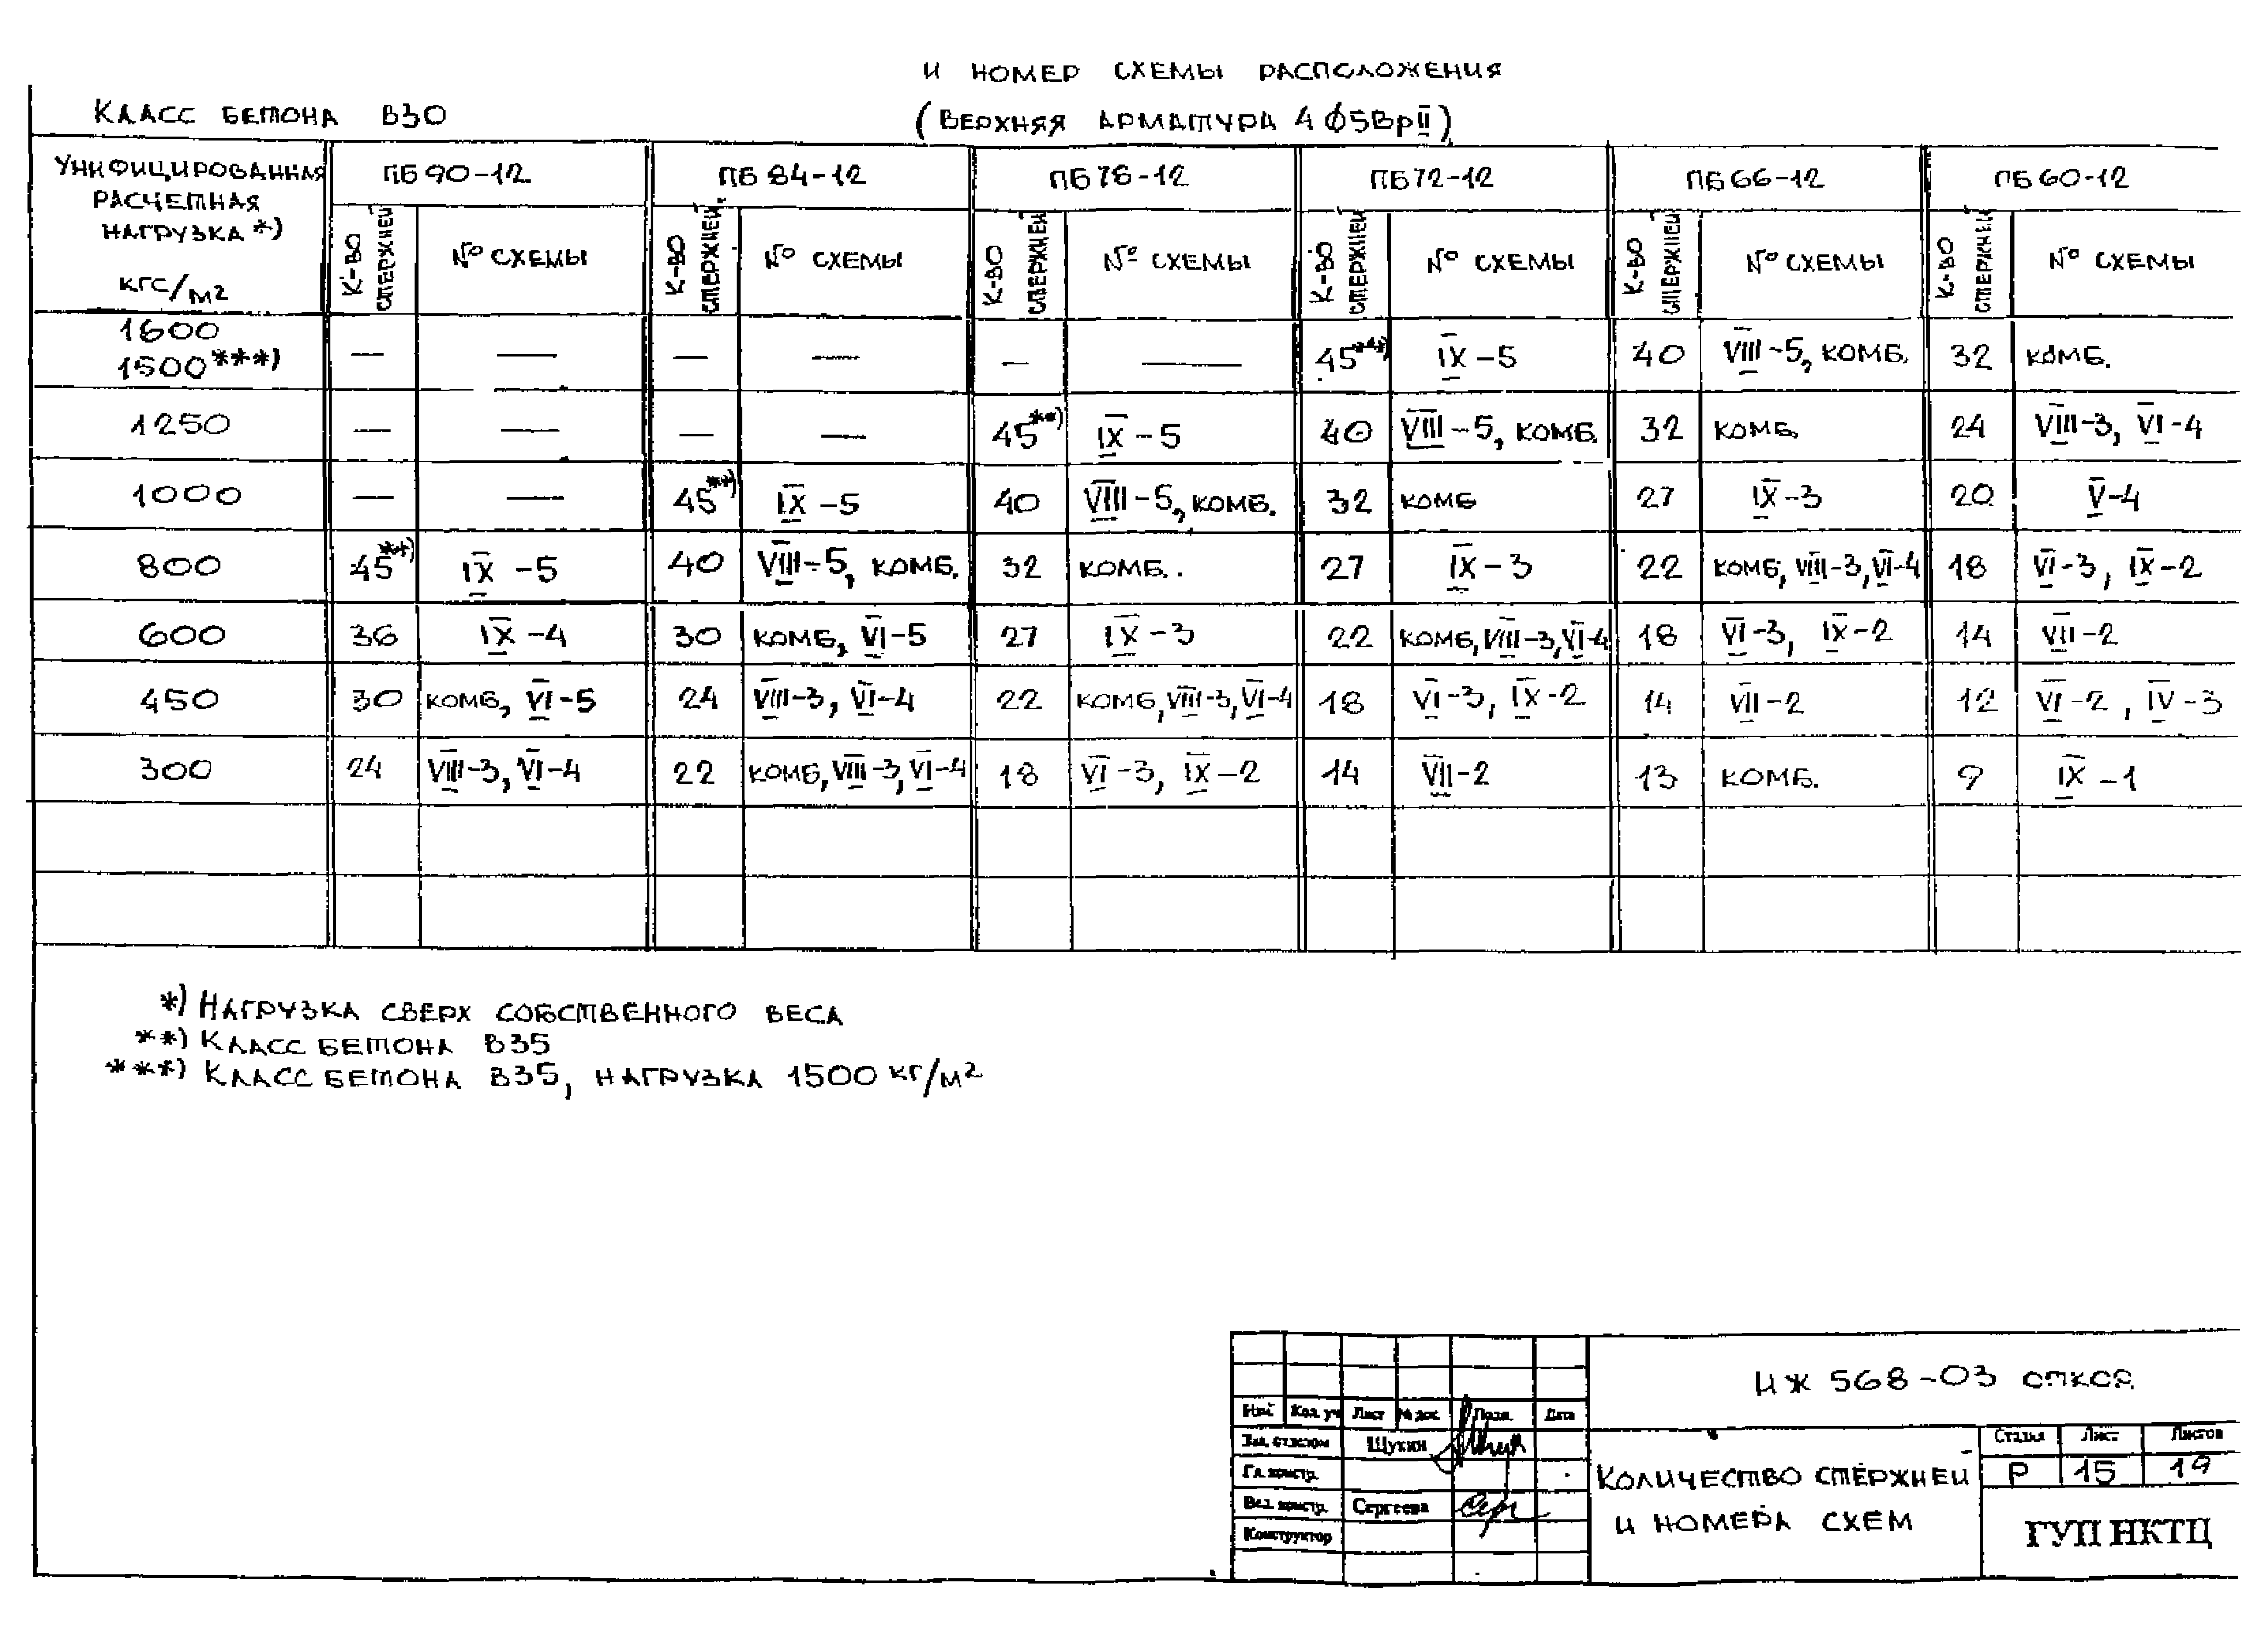 И НОМЕР СХЕМЫ РАСПОЛОЖЕНИЯ
КЛАСС БЕТОНА В30
(ВЕРХНЯЯ АРМАТУРА 4 Ф5ВрII)
УНИФИЦИРОВАННАЯ РАСЧЕТНАЯ НАГРУЗКА *) КГС/М2
ПБ 90-12 ПБ 84-12 ПБ 78-12 ПБ 72-12 ПБ 66-12 ПБ 60-12
К-ВО СТЕРЖНЕЙ № СХЕМЫ К-ВО СТЕРЖНЕЙ № СХЕМЫ К-ВО СТЕРЖНЕЙ № СХЕМЫ К-ВО СТЕРЖНЕЙ № СХЕМЫ К-ВО СТЕРЖНЕЙ № СХЕМЫ К-ВО СТЕРЖНЕЙ № СХЕМЫ
1600 1500***) — — — — — — 45**) IX-5 40 VIII-5, КОМБ. 32 КОМБ.
1250 — — — — 45**) IX-5 40 VIII-5, КОМБ. 32 КОМБ. 24 VIII-3, VI-4
1000 — — 45**) IX-5 40 VIII-5, КОМБ. 32 КОМБ 27 IX-3 20 V-4
800 45**) IX-5 40 VIII-5, КОМБ. 32 КОМБ. 27 IX-3 22 КОМБ, VIII-3, VI-4 18 VI-3, IX-2
600 36 IX-4 30 КОМБ, VI-5 27 IX-3 22 КОМБ, VIII-3, VI-4 18 VI-3, IX-2 14 VII-2
450 30 КОМБ, VI-5 24 VIII-3, VI-4 22 КОМБ, VIII-3, VI-4 18 VI-3, IX-2 14 VII-2 12 VI-2, IV-3
300 24 VIII-3, VI-4 22 КОМБ, VIII-3, VI-4 18 VI-3, IX-2 14 VII-2 13 КОМБ. 9 IX-1
*) НАГРУЗКА СВЕРХ СОБСТВЕННОГО ВЕСА
**) КЛАСС БЕТОНА В35
***) КЛАСС БЕТОНА В35, НАГРУЗКА 1500 КГ/М2
ИЖ 568-03 ОТКОР.
Кол. уч Лист № док Подп. Дата
Зав. отделом Щукин
Гл. констр.
Вед. констр. Сергеева
Конструктор
КОЛИЧЕСТВО СТЕРЖНЕЙ
И НОМЕРА СХЕМ
Стадия Лист Листов
Р 15 19
ГУП НКТЦ